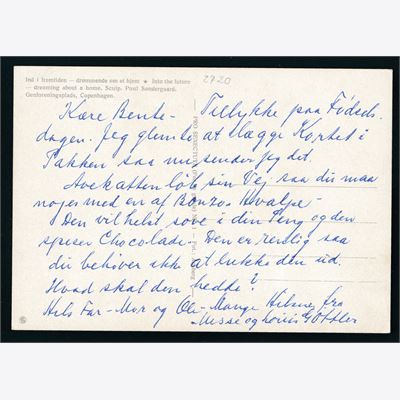 Ind i fremtiden — drømmende om et hjem ★ Into the future
— dreaming about a home. Sculp. Poul Søndergaard.
Genforeningsplads, Copenhagen.
2720
Kære Bente - Tillykke paa Fødsels-
dagen. Jeg glemte at lægge Kortet i
Pakken saa nu sender jeg det.
løb sin Vej saa du maa
nøjes med en af Bonzos Hvalpe -
Den vil helst sove i din Seng og den
spiser Chocolade. Den er renlig saa
du behøver ikke at lukke den ud.
Hvad skal den hedde?
Hils Far - Mor og Ole - Mange Hilsner fra
Misse og Louis Göttler